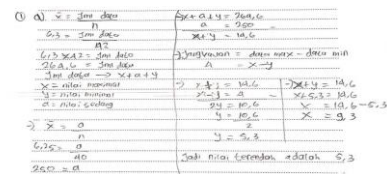 ① a) x̄ = Jml data / n
6,3 = Jml data / 42
6,3 x 42 = Jml data
264,6 = Jml data
Jml data → x + a + y
x = nilai maksimal
y = nilai minimal
a = nilai sedang
-) x̄ = a / n
6,25 = a / 40
250 = a
x + a + y = 264,6
a = 250
x + y = 14,6
-) Jangkauan = data max - data min
4 = x - y
-) x + y = 14,6
x - y = 4
2y = 10,6
y = 10,6 / 2
y = 5,3
-) x + y = 14,6
x + 5,3 = 14,6
x = 14,6 - 5,3
x = 9,3
Jadi nilai terendah adalah 5,3